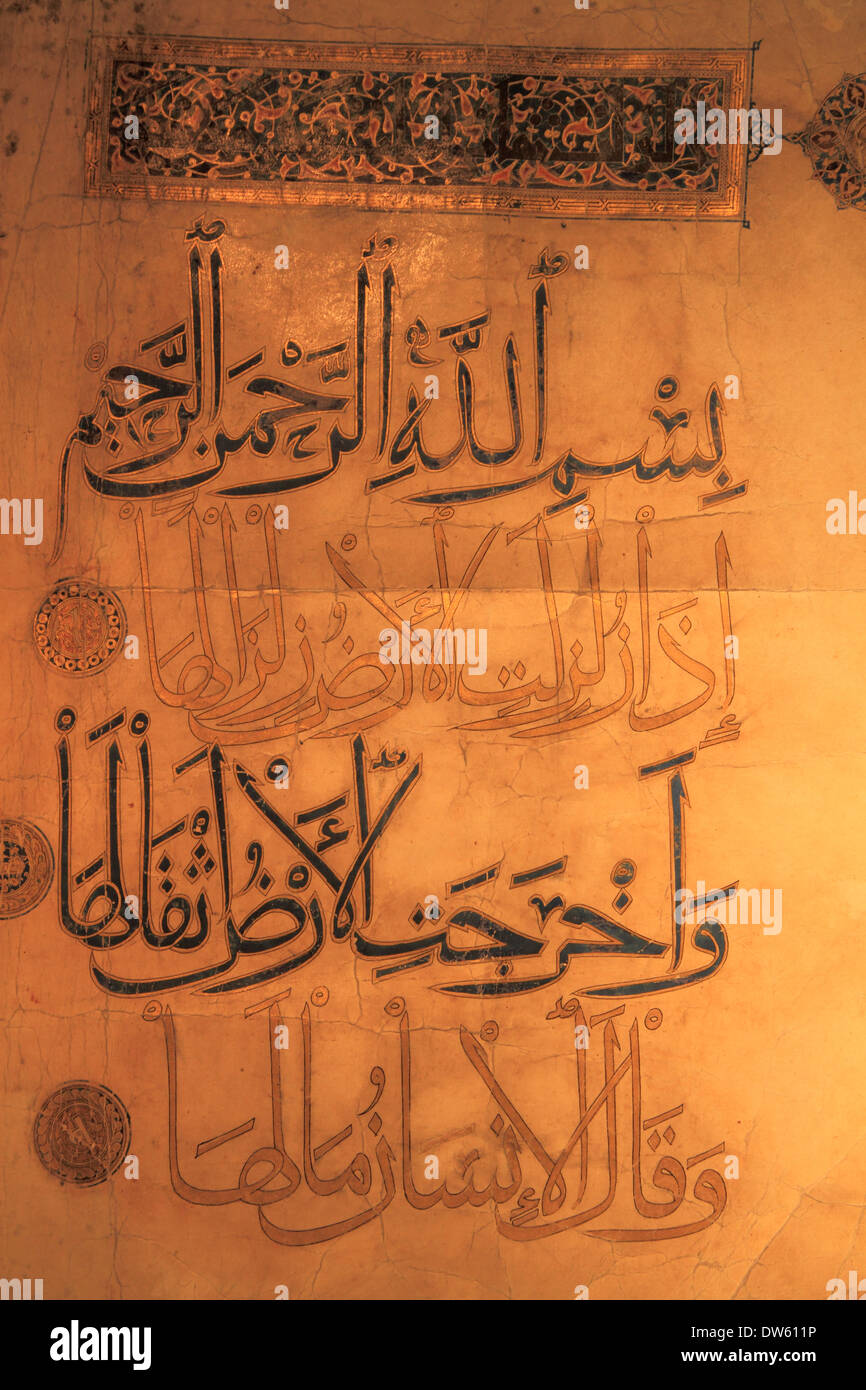 بِسْمِ ٱللَّهِ ٱلرَّحْمَنِ ٱلرَّحِيمِ
إِذَا زُلْزِلَتِ ٱلْأَرْضُ زِلْزَالَهَا
وَأَخْرَجَتِ ٱلْأَرْضُ أَثْقَالَهَا
وَقَالَ ٱلْإِنْسَانُ مَا لَهَا
alamy
Image ID: DW611P
www.alamy.com